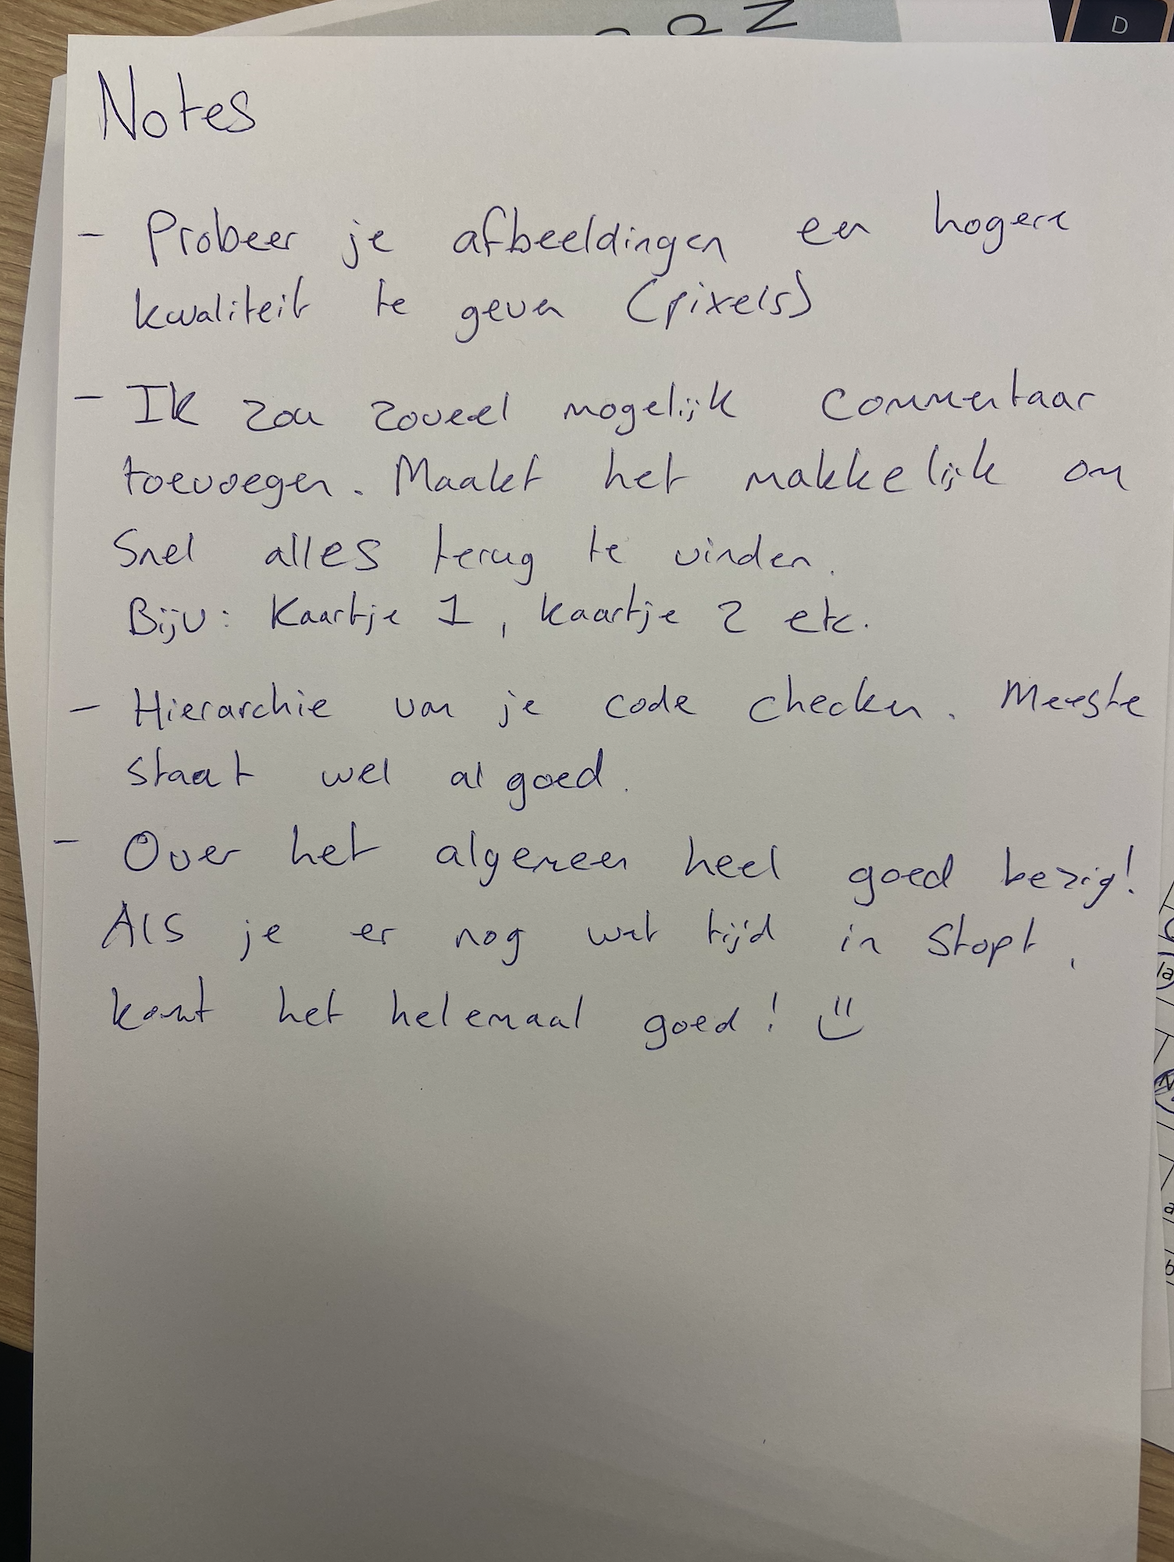 Notes
- Probeer je afbeeldingen een hogere
kwaliteit te geven (pixels)
- Ik zou zoveel mogelijk commentaar
toevoegen. Maakt het makkelijk om
snel alles terug te vinden.
Bijv: Kaartje 1, kaartje 2 etc.
- Hierarchie van je code checken. Meeste
staat wel al goed.
- Over het algemeen heel goed bezig!
Als je er nog wat tijd in stopt,
komt het helemaal goed!
D